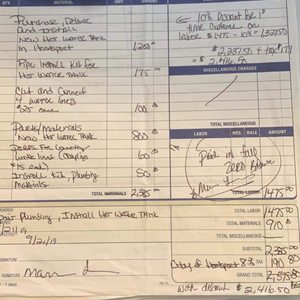 QTY. MATERIAL UNIT AMOUNT
Purchase, Deliver
and Install
New Hot Water Tank
in Hartsport 1,200 00
Pipe Install Kit for
Hot Water Tank 175 00
Cut and Connect
4 water lines
$25 each 100 00
Parts/Materials
New Hot Water Tank 800 00
Parts for
water lines
$15 each) 60 00
Install Kit, Plumbing
Materials 50 00
TOTAL MATERIALS 2,385 00
10% Discount
time Customer on
Labor $1475 - 10% = 1327.50
$2,237.50 + tax 179
= $2,416.50
MISCELLANEOUS CHARGES
TOTAL MISCELLANEOUS
LABOR HRS. RATE AMOUNT
Paid in full
zero Balance
1475 00
Plumbing, Install Hot Water Tank
9/21/19
SIGNATURE
TOTAL LABOR 1475 00
TOTAL MATERIALS 910 00
TOTAL MISCELLANEOUS
SUBTOTAL 2,385 00
8% TAX 190 80
GRAND TOTAL 2,575 80
with discount $2,416.50